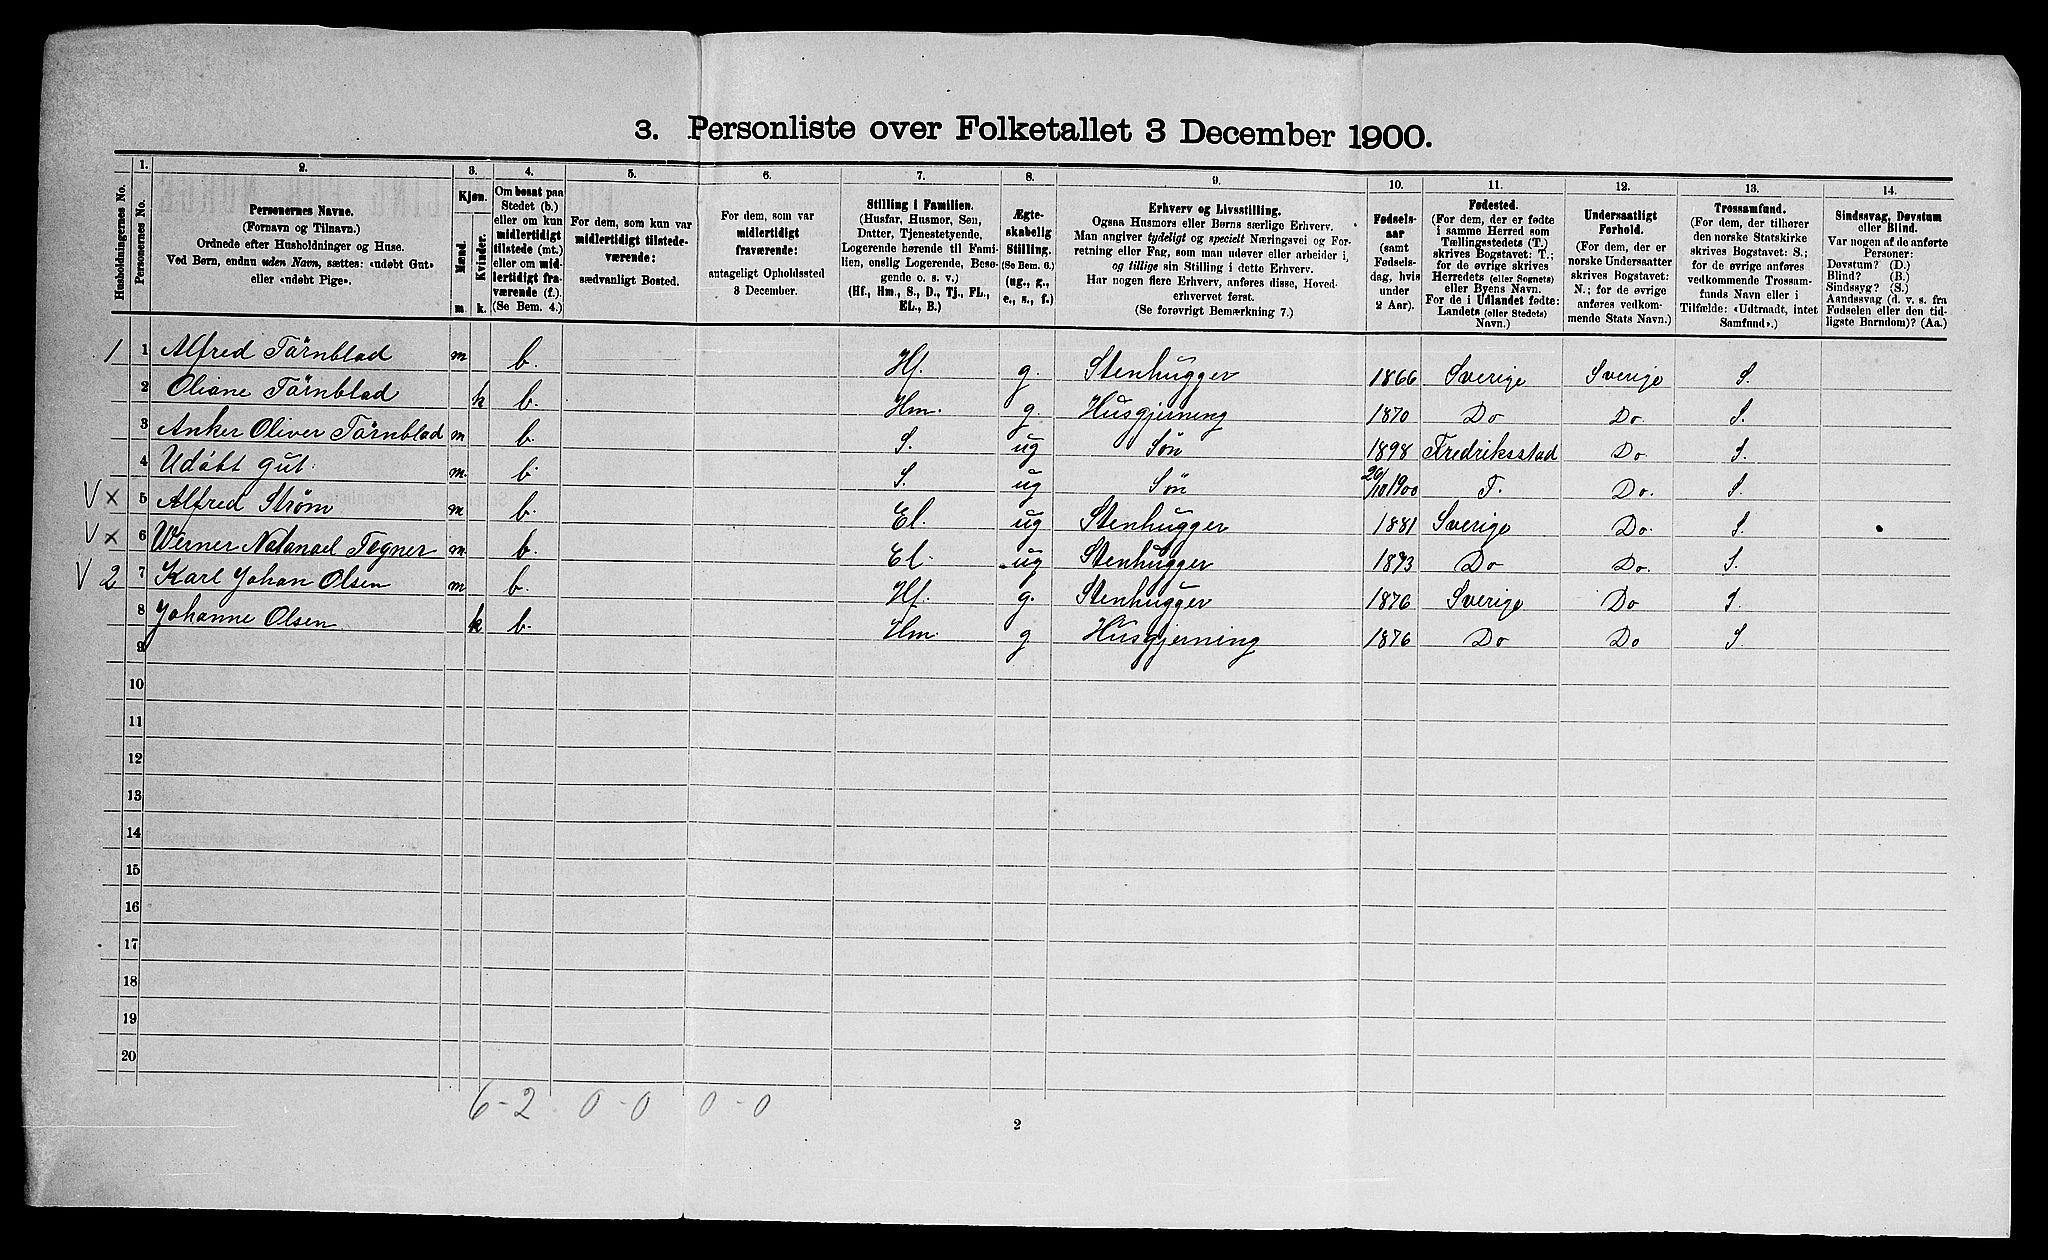 3. Personliste over Folketallet 3 December 1900.
Husholdningernes No.
1.
Personernes No.
2.
Personernes Navne.
(Fornavn og Tilnavn.)
Ordnede efter Husholdninger og Huse.
Ved Børn, endnu uden Navn, sættes: «udøbt Gut»
eller «udøbt Pige».
3.
Kjøn.
Mænd.
m.
Kvinder.
k.
4.
Om bosat paa
Stedet (b.)
eller om kun
midlertidigt
tilstede (mt.)
eller om mid-
lertidigt fra-
værende (f.).
(Se Bem. 4.)
5.
For dem, som kun var
midlertidigt tilstede-
værende:
sædvanligt Bosted.
6.
For dem, som var
midlertidigt
fraværende:
antageligt Opholdssted
3 December.
7.
Stilling i Familien.
(Husfar, Husmor, Søn,
Datter, Tjenestetyende,
Logerende hørende til Fami-
lien, enslig Logerende, Besø-
gende o. s. v.)
(Hf., Hm., S., D., Tj., FL.,
EL., B.)
8.
Ægte-
skabelig
Stilling.
(Se Bem. 6.)
(ug., g.,
e., s., f.)
9.
Erhverv og Livsstilling.
Ogsaa Husmors eller Børns særlige Erhverv.
Man angiver tydeligt og specielt Næringsvei og For-
retning eller Fag, som man udøver eller arbeider i,
og tillige sin Stilling i dette Erhverv.
Har nogen flere Erhverv, anføres disse, Hoved-
erhvervet først.
(Se forøvrigt Bemærkning 7.)
10.
Fødsels-
aar
(samt
Fødsels-
dag, hvis
under
2 Aar).
11.
Fødested.
(For dem, der er fødte
i samme Herred som
Tællingsstedets (T.)
skrives Bogstavet: T.;
for de øvrige skrives
Herredets (eller Sognets)
eller Byens Navn.
For de i Udlandet fødte:
Landets (eller Stedets)
Navn.)
12.
Undersaatligt
Forhold.
(For de, der er
norske Undersaatter
skrives Bogstavet:
N.; for de øvrige
anføres vedkom-
mende Stats Navn.)
13.
Trossamfund.
(For dem, der tilhører
den norske Statskirke
skrives Bogstavet: S.;
for de øvrige anføres
vedkommende Trossam-
funds Navn eller i
Tilfælde: «Udtraadt, intet
Samfund».)
14.
Sindssvag, Døvstum
eller Blind.
Var nogen af de anførte
Personer:
Døvstum? (D.)
Blind? (B.)
Sindssyg? (S.)
Aandssvag (d. v. s. fra
Fødselen eller den tid-
ligste Barndom)? (Aa.)
1 1 Alfred Törnblad m b. Hf. g. Stenhugger 1866 Sverige Sverige S.
2 Oliane Törnblad k b. Hm. g. Husgjerning 1870 Do Do. S.
3 Anker Oliver Törnblad m b. S. ug Søn 1898 Fredriksstad Do. S.
4 Udöbt gut. m. b. S. ug Søn 26/10 1900 T. Do. S.
V x 5 Alfred Strøm m b. El. ug Stenhugger 1881 Sverige Do. S.
V x 6 Werner Natanael Tegner m. b. El. ug Stenhugger 1873 Do Do. S.
V 2 7 Karl Johan Olsen m b. Hf. g. Stenhugger 1876 Sverige Do S.
8 Johanne Olsen k b. Hm. g Husgjerning 1876 Do Do S.
9
10
11
12
13
14
15
16
17
18
19
20
6-2 0-0 0-0
2